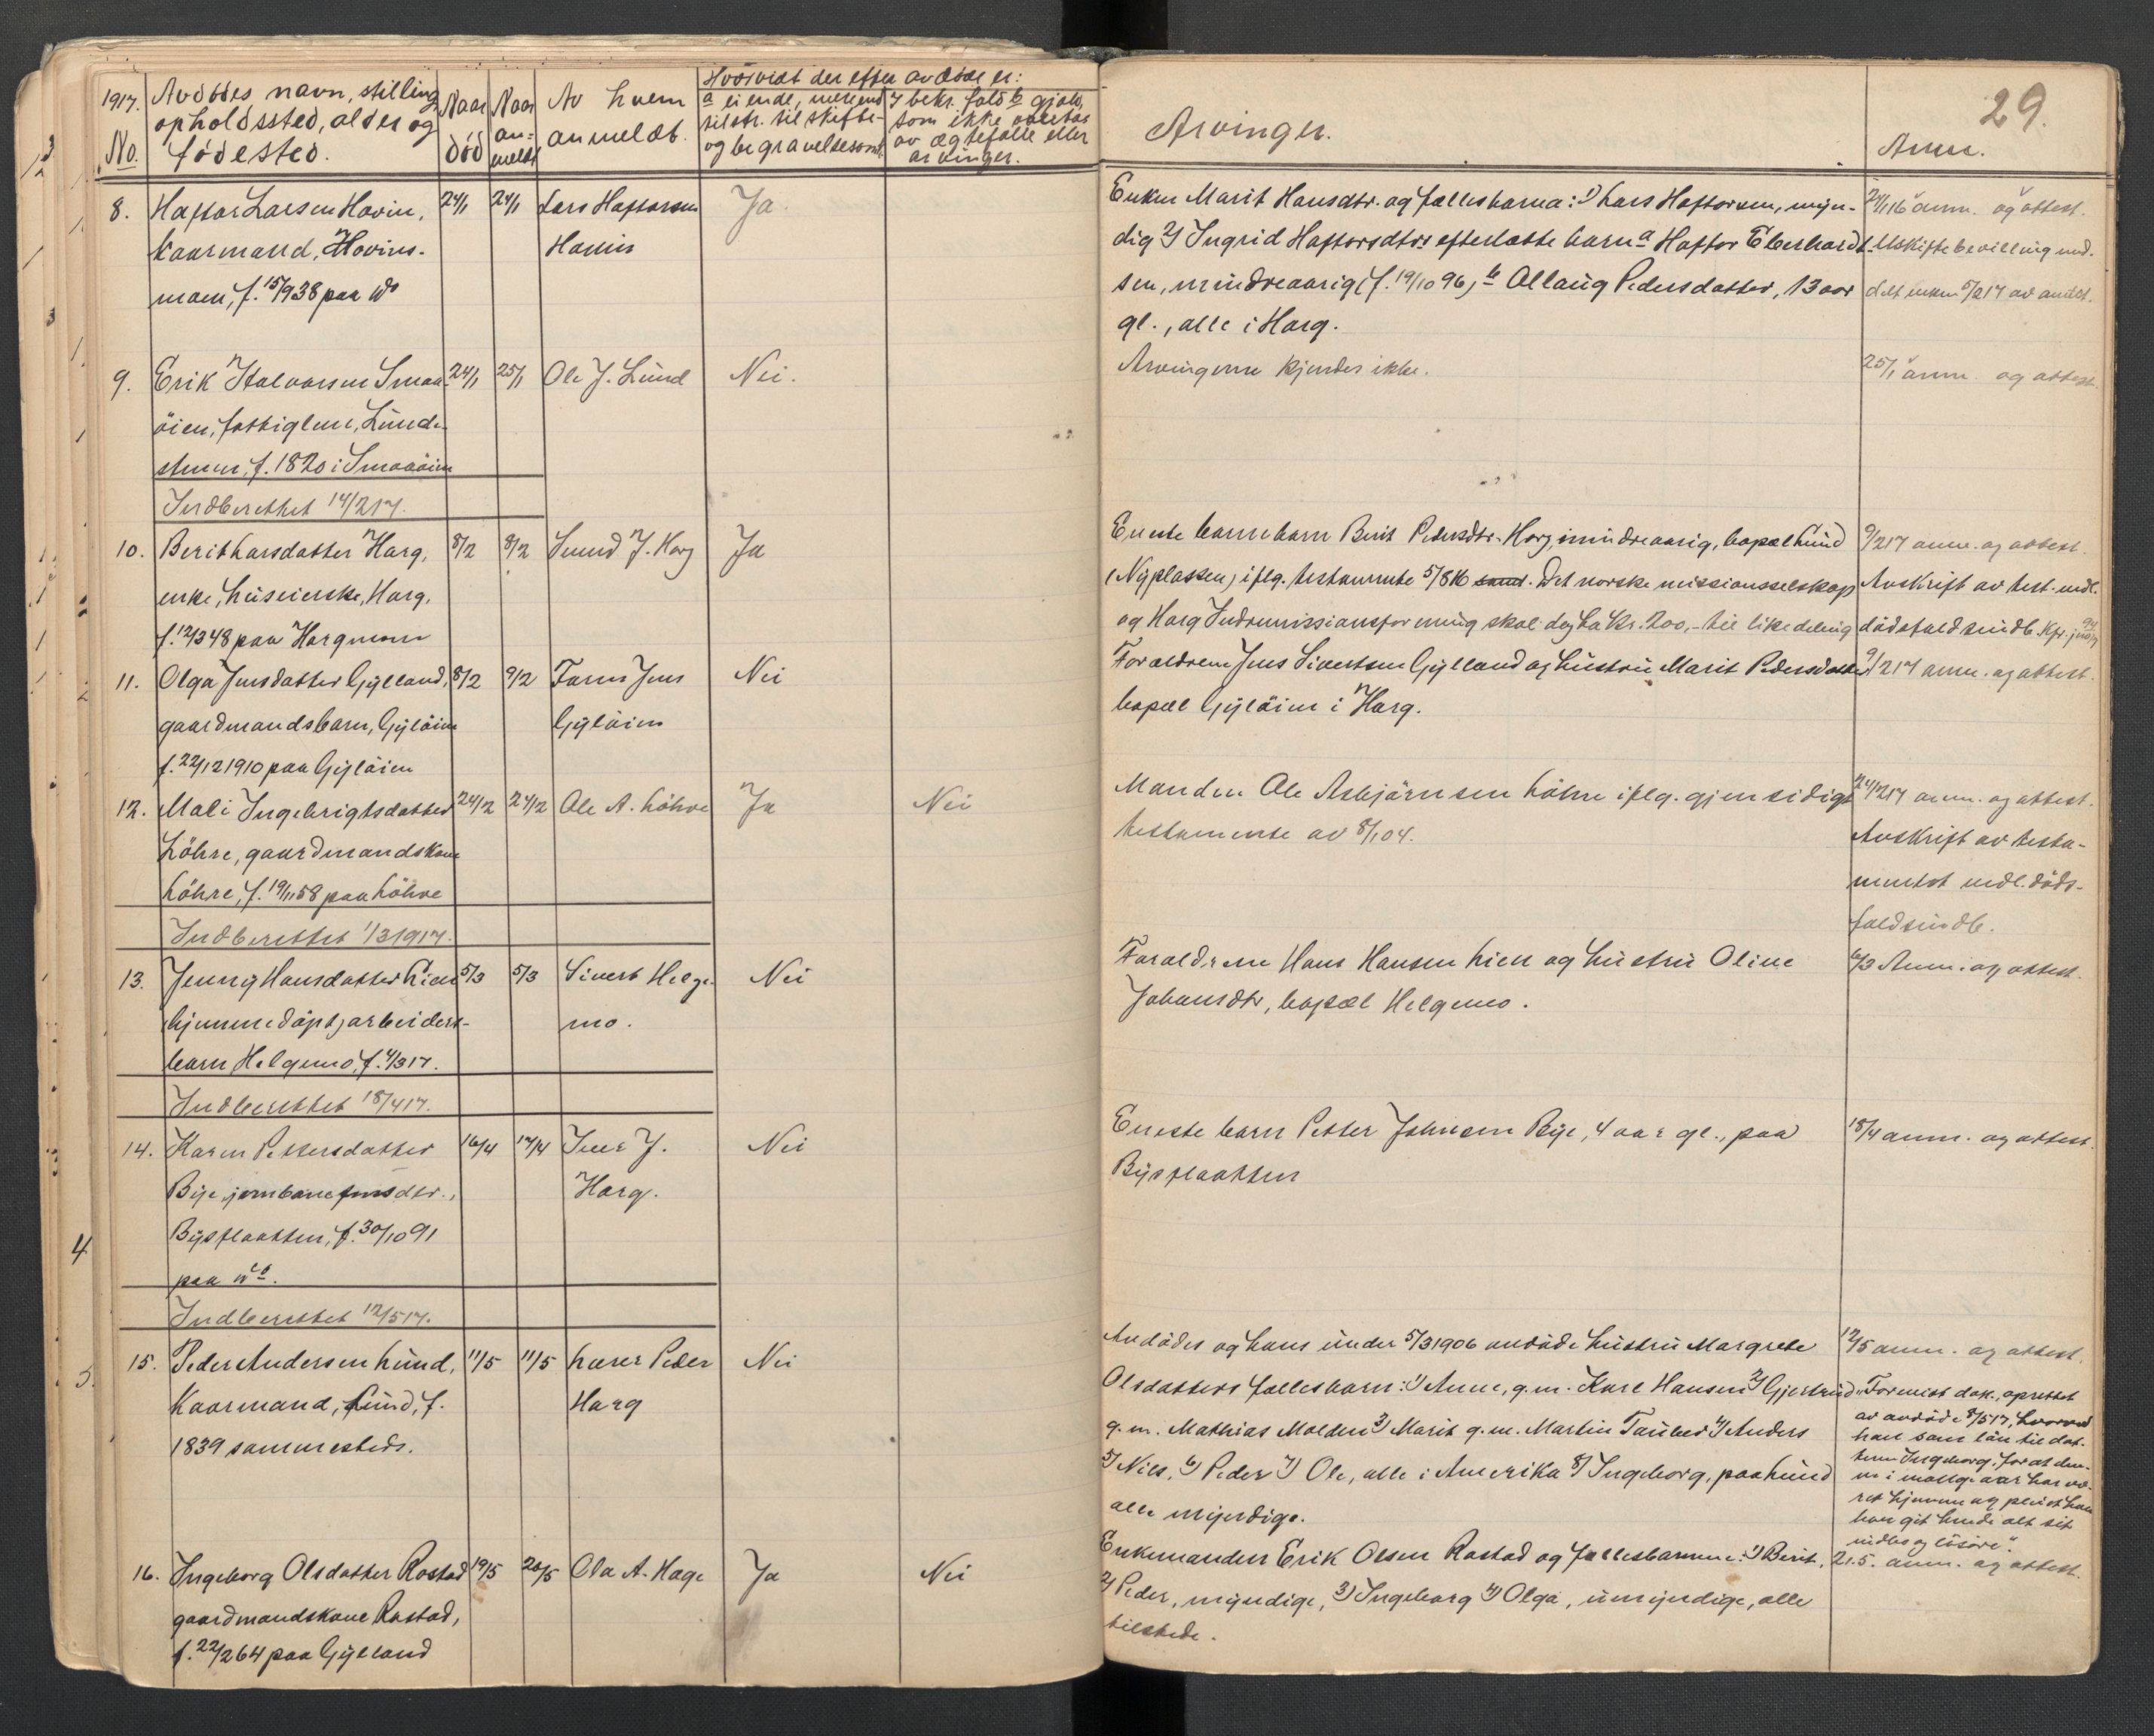 1917.
No.
Avdødes navn, stilling
opholdssted, alder og
fødested.
Naar
død
Naar
an-
meldt
Av hvem
anmeldt.
Hvorvidt der efter avdøde er:
a eiende, mere end
tilstr. til skifte-
og begravelsesomk.
i bekr. fald b gjæld,
som ikke overtas
av ægtefælle eller
arvinger.
Arvinger.
29.
Anm.
8.
Haftor Larsen Hovin,
kaarmand, Hovins-
moen, f. 15/9 38 paa do
24/1
24/1
Lars Haftorsen
Hovin
Ja.
Enken Marit Hansdtr. og fællesbarna: 1) Lars Haftorsen, myn-
dig 2) Ingrid Haftorsdtrs efterlatte barn a Haftor Eberhardt-
sen, mindreaarig (f. 19/10 96) b Ollaug Pedersdatter, 13 aar
gl., alle i Horg.
24/1 16 anm. og attest.
Uskiftebevilling med-
delt enken 5/2 17 av amtet.
9.
Erik Halvorsen Smaa-
øien, fattiglem, Lunde-
stuen, f. 1820 i Smaaøien
24/1
25/1
Ole J. Lund
Nei.
Arvingerne kjendes ikke.
25/1 anm. og attest.
Indberettet 14/2 17.
10.
Berit Larsdatter Horg,
enke, huseierske, Horg,
f. 12/3 48 paa Horgmoen
8/2
9/2
Svend J. Horg
Ja
Eneste barnebarn Berit Pedersdtr. Horg, mindreaarig, bopæl Lund
(Nyplassen) iflg. testamente 5/8 16. Det norske missionsselskap
og Horg Indremissionsforening skal dog ha kr. 200,- til likedeling
9/2 17 anm. og attest.
Avskrift av test. vedl.
dødsfaldsindb.
11.
Olga Jensdatter Gylland,
gaardmandsbarn, Gyløien
f. 22/12 1910 paa Gyløien
8/2
9/2
Faren Jens
Gyløien
Nei
Forældrene Jens Sivertsen Gylland og hustru Marit Pedersdatter
bopæl Gyløien i Horg.
9/2 17 anm. og attest.
12.
Mali Ingebrigtsdatter
Løhre, gaardmandskone
Løhre, f. 19/11 58 paa Løhre
24/2
24/2
Ole A. Løhre
Ja
Nei
Manden Ole Asbjørnsen Løhre iflg. gjensidigt
testamente av 8/1 04.
24/2 17 anm. og attest.
Avskrift av testa-
mentet vedl. døds-
faldsindb.
Indberettet 1/3 1917.
13.
Jenny Hansdatter Lien
(hjemmedøpt) arbeiders-
barn Helgemo, f. 4/3 17.
5/3
5/3
Sivert Helge-
mo.
Nei
Forældrene Hans Hansen Lien og hustru Oline
Johansdtr, bopæl Helgemo.
6/3 Anm. og attest.
Indberettet 18/4 17.
14.
Karen Pettersdatter
Bye, jernbanefmsdtr.,
Bysflaatten, f. 30/10 91
paa do.
16/4
17/4
Iver J.
Horg.
Nei
Eneste barn Petter Johnsen Bye, 4 aar gl., paa
Bysflaatten
18/4 anm. og attest.
Indberettet 12/5 17.
15.
Peder Andersen Lund,
Kaarmand, Lund, f.
1839 sammesteds.
11/5
11/5
Lærer Peder
Horg
Nei
Avdødes og hans under 5/3 1906 avdøde hustru Margrete
Olsdatters fællesbarn: 1) Anne, g. m. Karl Hansen 2) Gjertrud
g. m. Mathias Molden 3) Marit g. m. Martin Tauber 4) Anders
5) Nils, 6) Peder 7) Ole, alle i Amerika 8) Ingeborg, paa Lund
alle myndige.
12/5 anm. og attest.
"Forevist dok., oprettet
av avdøde 8/5 17, hvorved
han som løn til dat-
teren Ingeborg, for at den-
ne i mange aar har væ-
ret hjemme og pleiet ham
har git hende alt sit
indbo og løsøre".
16.
Ingeborg Olsdatter Rostad
gaardmandskone Rostad,
f. 22/2 64 paa Gylland
19/5
20/5
Ola A. Hage
Ja
Nei
Enkemanden Erik Olsen Rostad og fællesbarnene: 1) Berit,
2) Peder, myndige, 3) Ingeborg 4) Olga, umyndige, alle
tilstede.
21.5. anm. og attest.